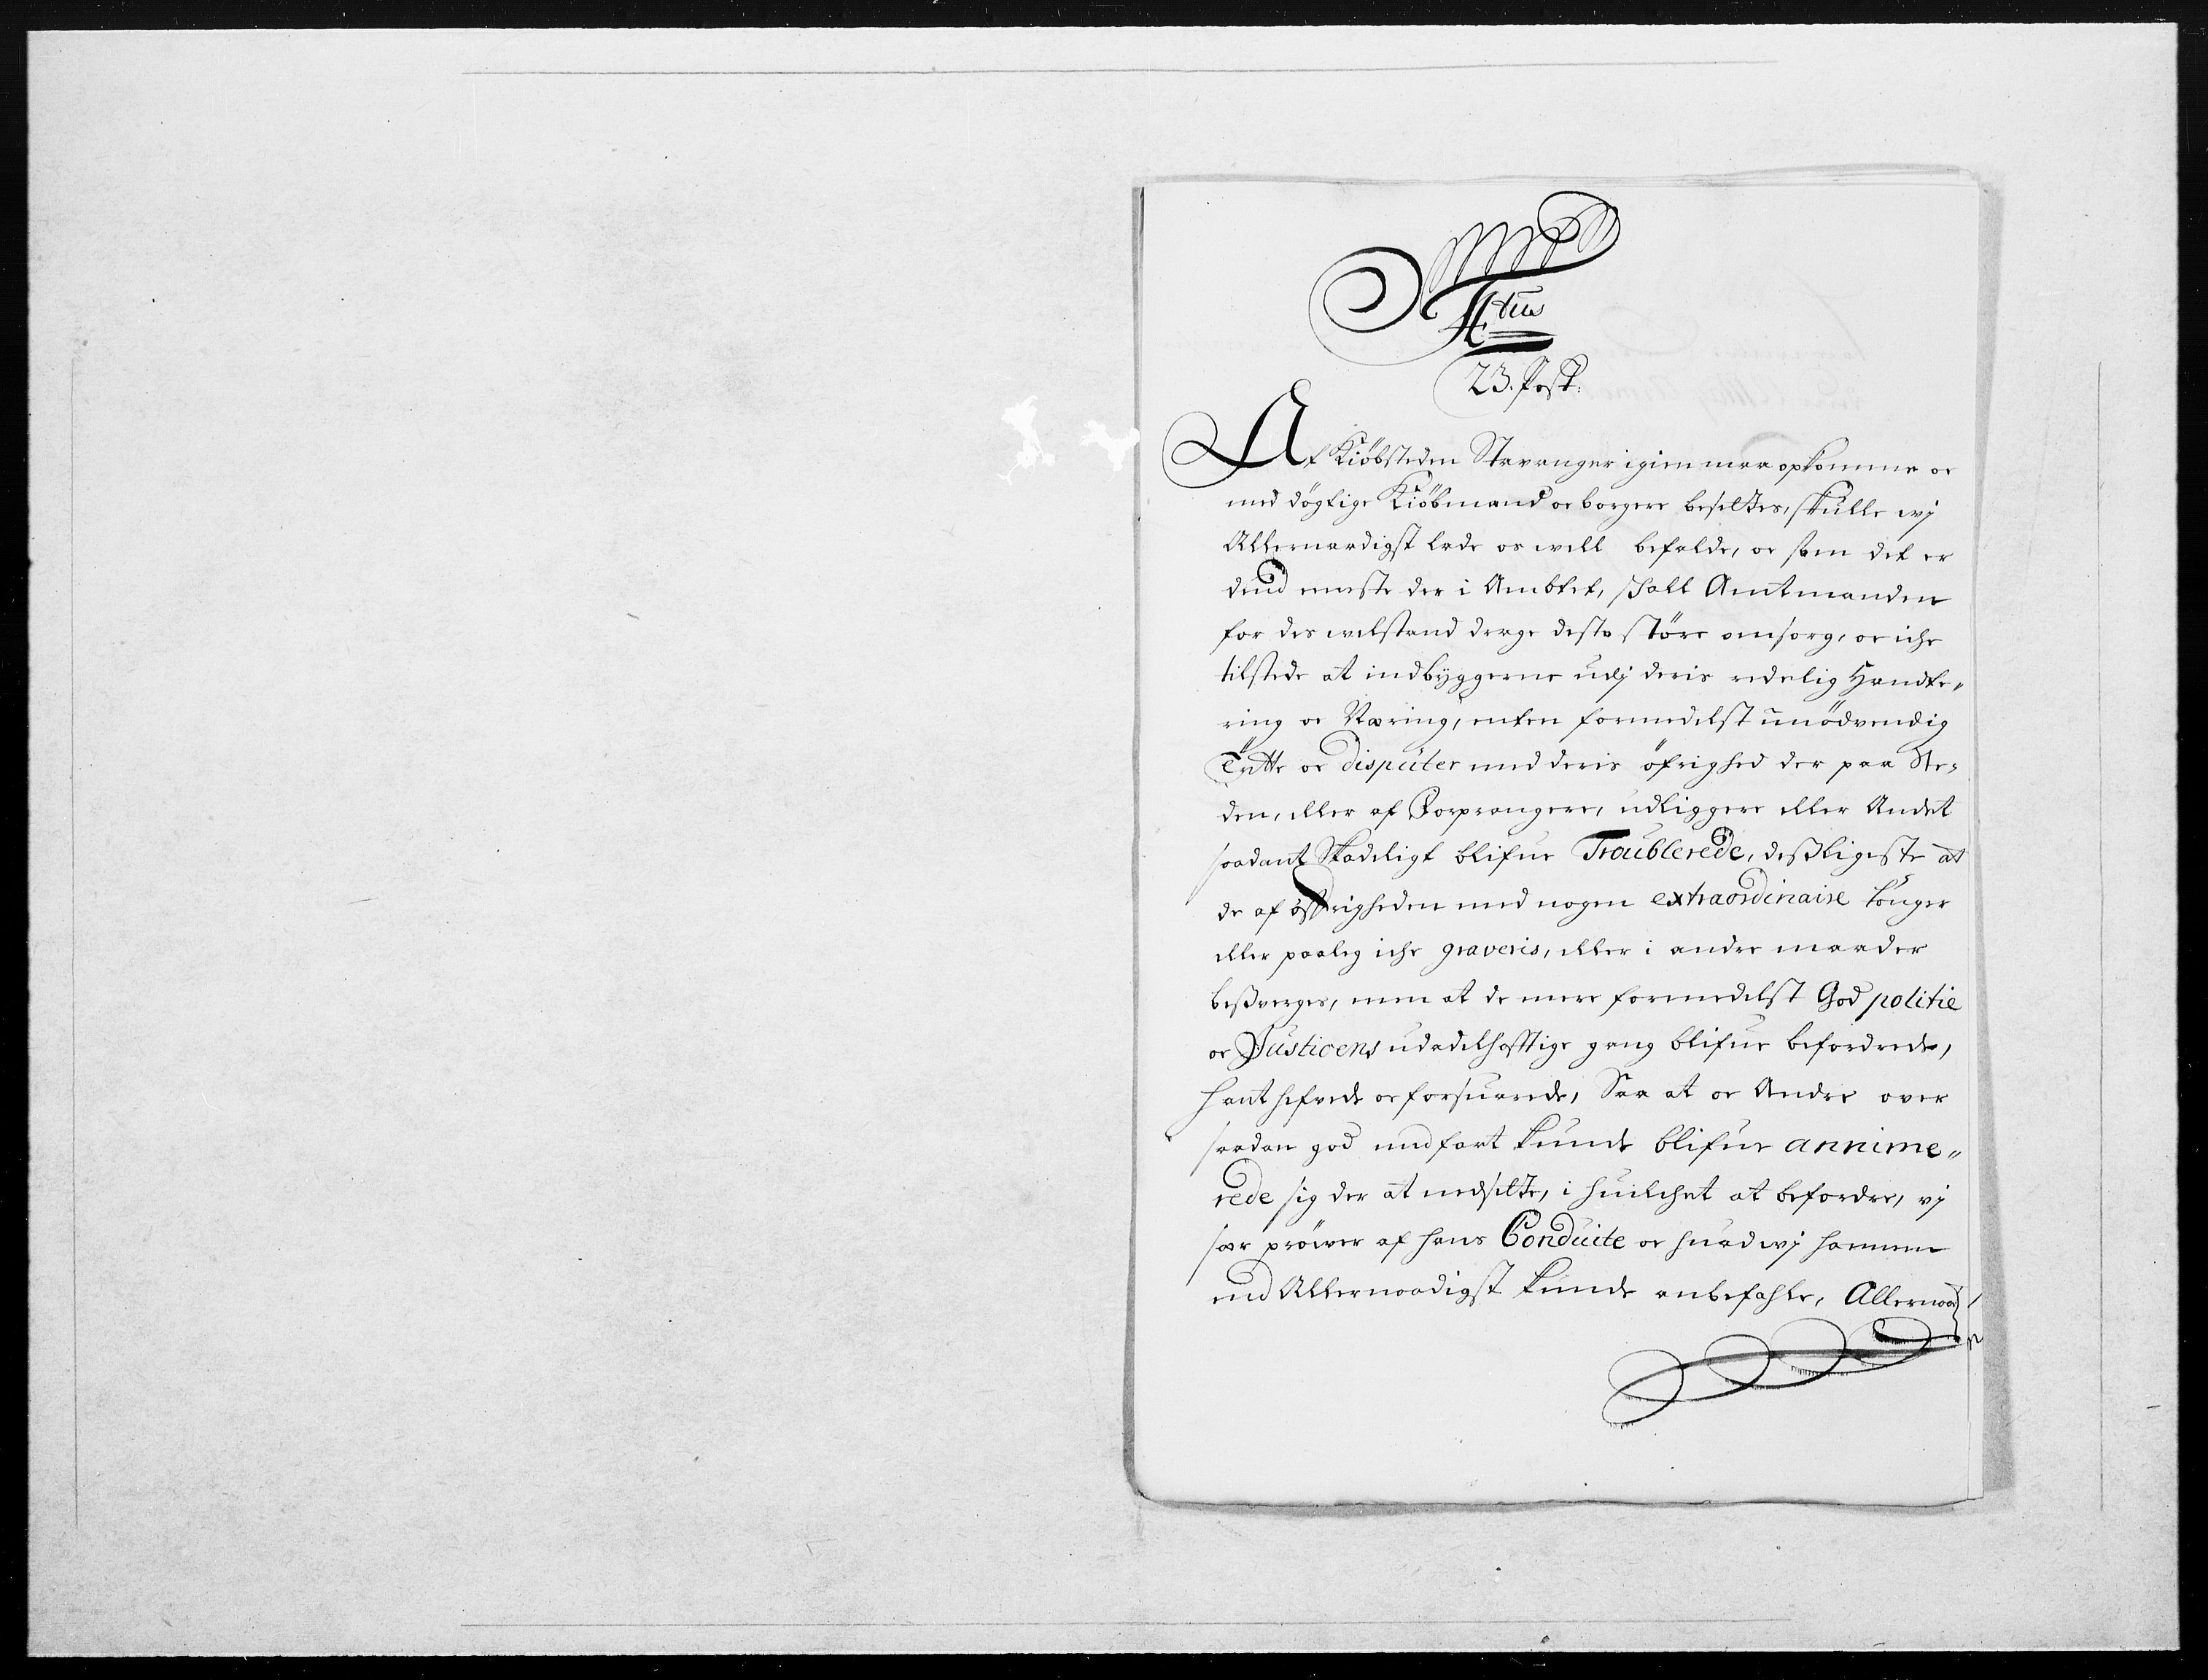 23. Post.
At Kiöbsteden Stavanger igien maa opkomme oc
med dögtige Kiöbmænd oc borgere besettes, skulle wj
Allernaadigst lade os well befalde, oc som det er
dend eneste der i Ambtet, skall Amtmanden
for des welstand derge desto större omsorg, oc iche
tilstede at indbyggerne udj deris redelig Handte„
ring oc Næring, enten formedelst unödvendig
Trætte oc disputer med deris öfrighed der paa Ste„
den, eller af Forprangere, udliggere eller Andet
saadant Skadeligt blifue Troublerede, desligeste at
de af öffrigheden med nogen extraordinaire tonger
eller paaleg iche graveris, eller i andre maader
besverges, men at de mere formedelst God politie
oc Justicens udadelhafftige gang blifue befordrede,
hanthefvede oc forsuarede, Saa at oc Andre over
saadan god medfart kunde blifue annime„
rede sig der at nedsette, i huilchet at befordre, vj
saa pröwer af hans Conduite oc huad wj hannem
end Allernaadigst kunde anbefahle, Allernaad